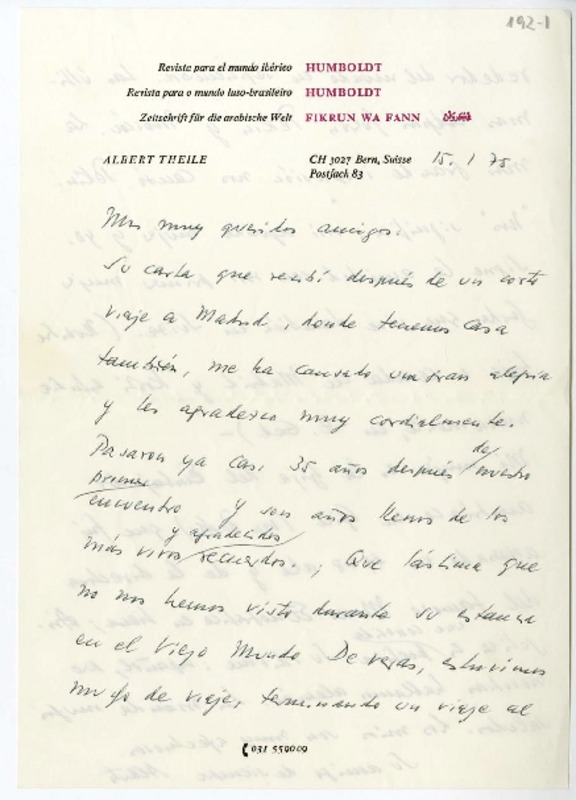 192-1
Revista para el mundo ibérico HUMBOLDT
Revista para o mundo luso-brasileiro HUMBOLDT
Zeitschrift für die arabische Welt FIKRUN WA FANN
ALBERT THEILE CH 3027 Bern, Suisse 15. 1 75
Postfach 83
Mis muy queridos amigos:
Su carta que recibí después de un corto
viaje a Madrid, donde tenemos casa
también, me ha causado una gran alegría
y les agradezco muy cordialmente.
Pasaron ya casi 35 años después de nuestro
primer
encuentro y son años llenos de los
y agradecidos
más vivos recuerdos. ¡Que lástima que
no nos hemos visto durante su estancia
en el Viejo Mundo. De veras, estuvimos
de viaje, terminando un viaje al
031 559009